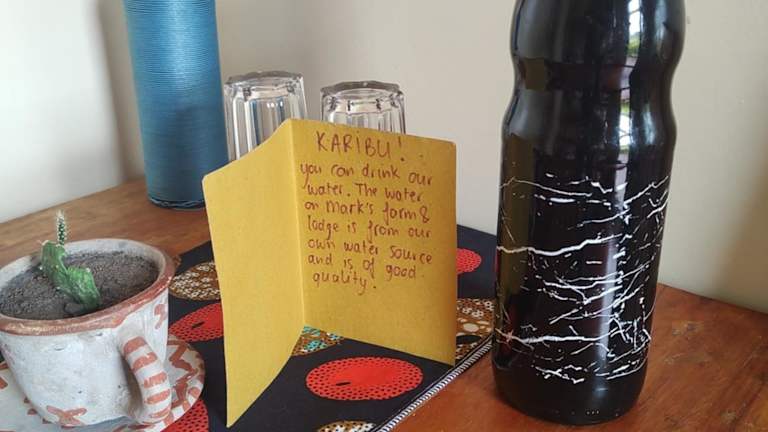 KARIBU!
you can drink our
water. The water
on Mark's farm &
lodge is from our
own water source
and is of good
quality.